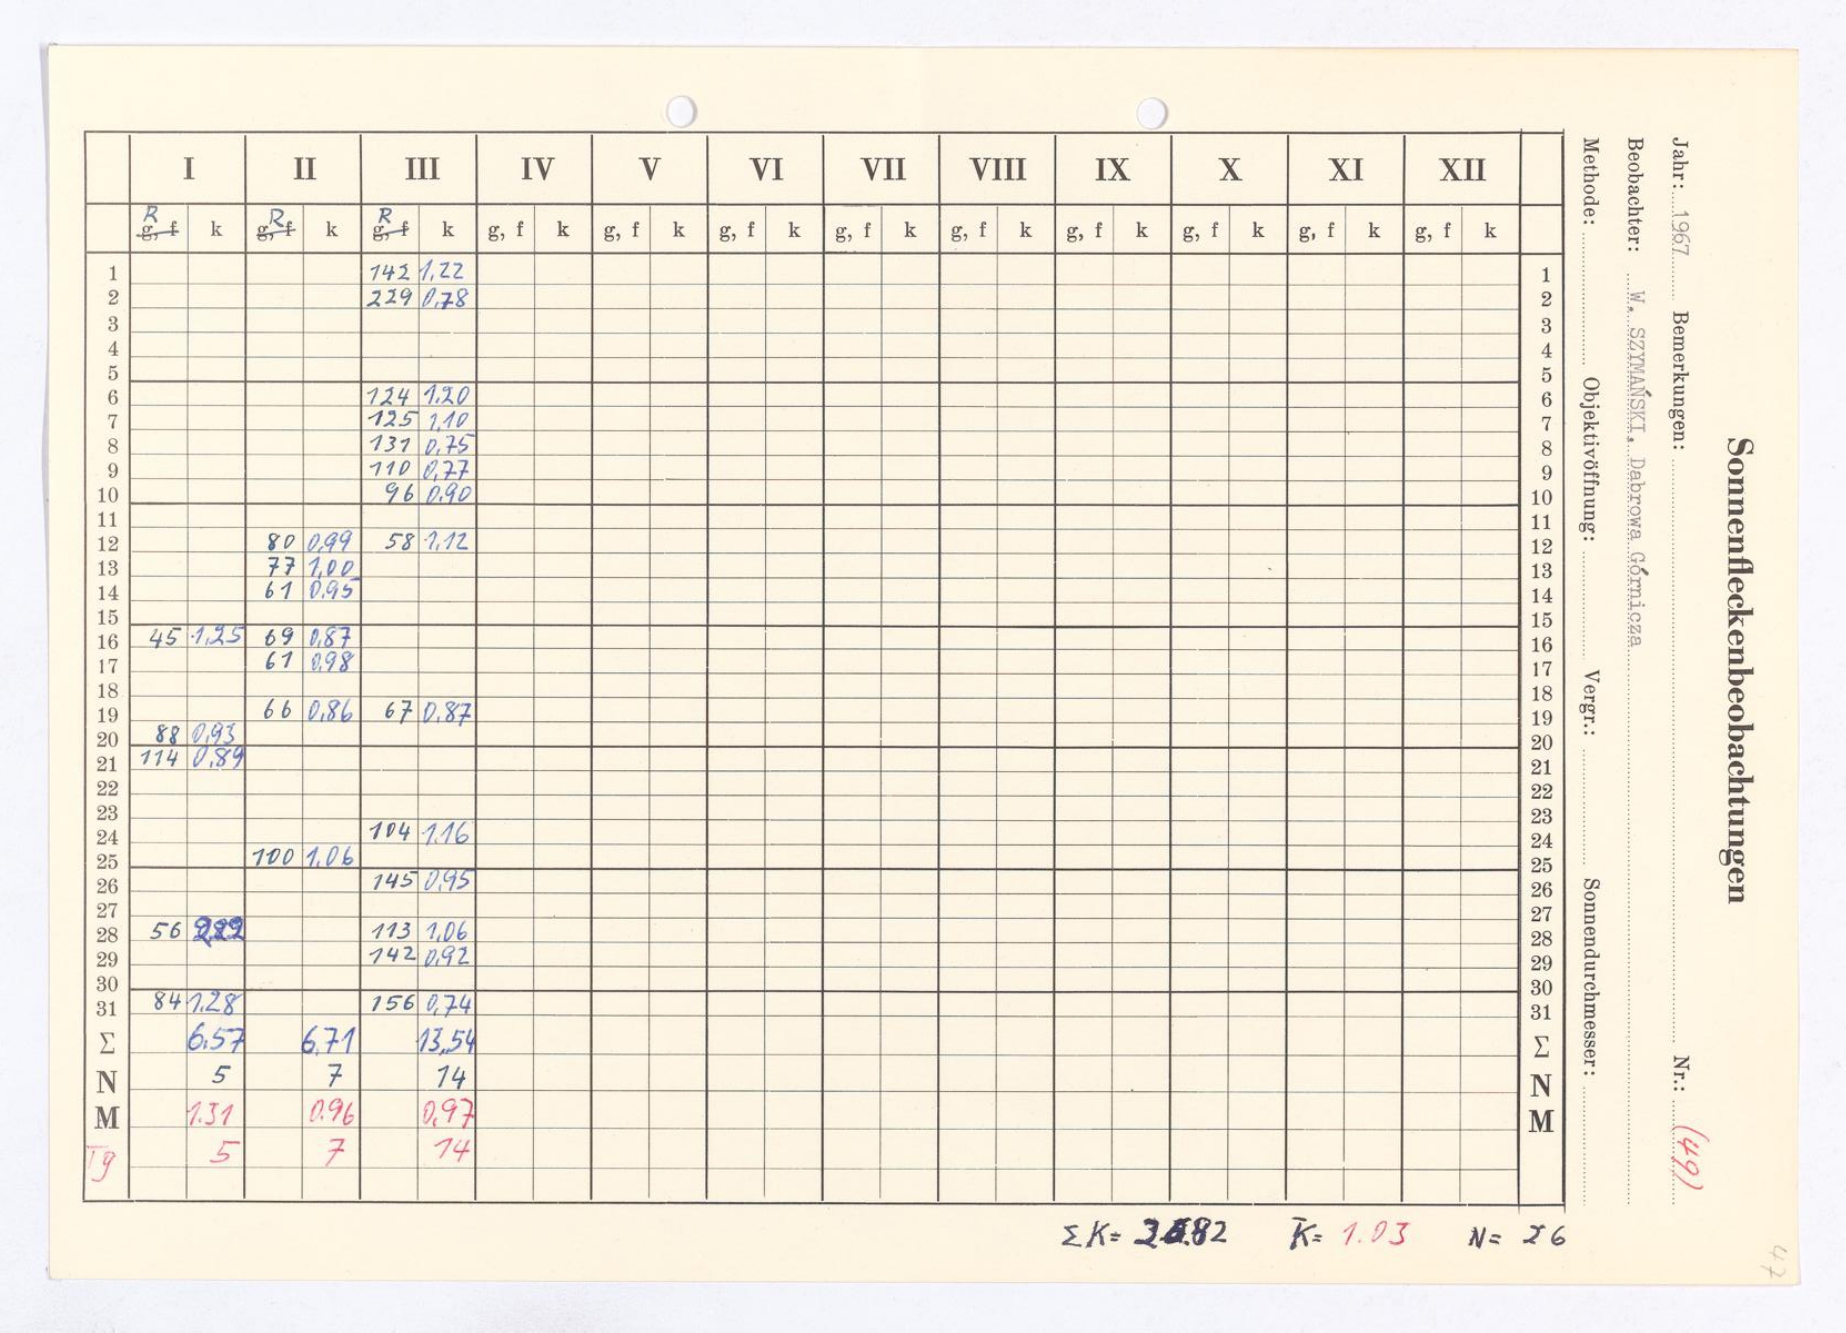 Sonnenfleckenbeobachtungen
Jahr: 1967 Bemerkungen: Nr.: (49)
Beobachter: W. SZYMAŃSKI, Dabrowa Górnicza
Methode: Objektivöffnung: Vergr.: Sonnendurchmesser:
I II III IV V VI VII VIII IX X XI XII
R R R
g, f k g, f k g, f k g, f k g, f k g, f k g, f k g, f k g, f k g, f k g, f k g, f k
1 142 1,22 1
2 229 0,78 2
3 3
4 4
5 5
6 124 1.20 6
7 125 1,10 7
8 131 0,75 8
9 110 0,77 9
10 96 0,90 10
11 11
12 80 0,99 58 1,12 12
13 77 1,00 13
14 61 0,95 14
15 15
16 45 1,25 69 0,87 16
17 61 0,98 17
18 18
19 66 0,86 67 0,87 19
20 88 0,93 20
21 114 0,89 21
22 22
23 23
24 104 1.16 24
25 100 1,06 25
26 145 0,95 26
27 27
28 56 113 1,06 28
29 142 0,92 29
30 30
31 84 1,28 156 0,74 31
Σ 6,57 6,71 13,54 Σ
N 5 7 14 N
M 1.31 0.96 0,97 M
Tg 5 7 14
ΣK= K̅= 1.03 N= 26
47